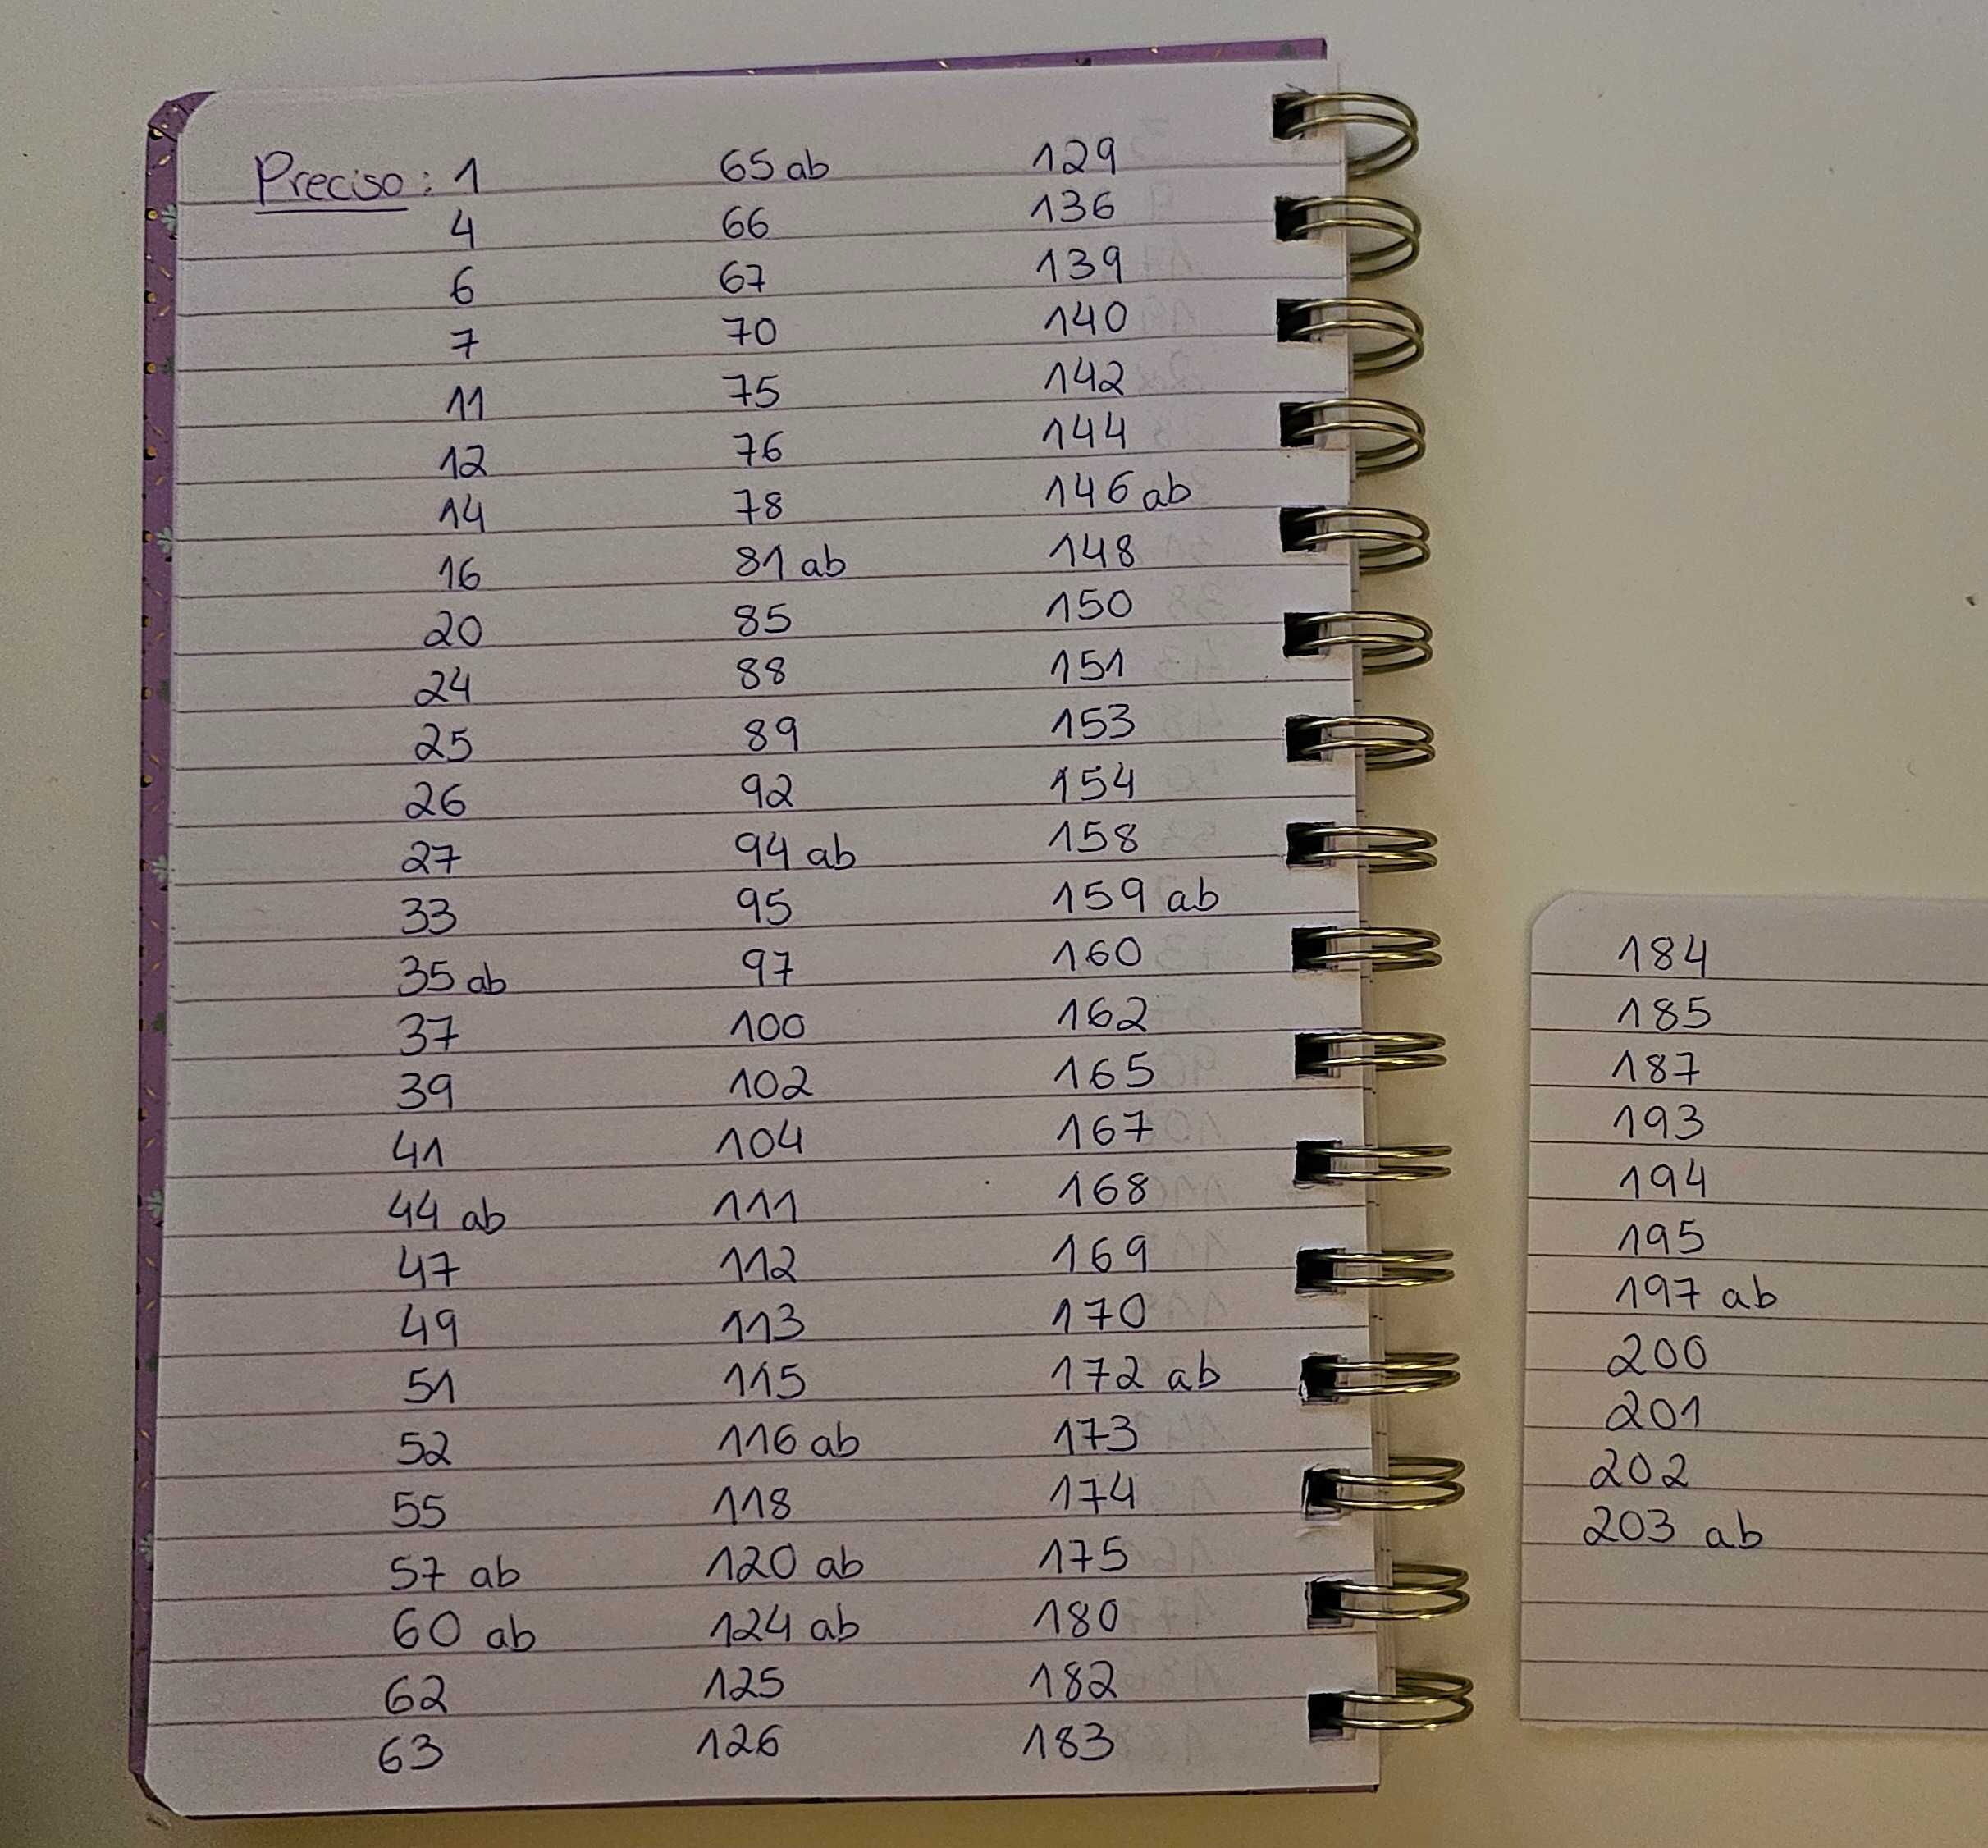 Preciso: 1
4
6
7
11
12
14
16
20
24
25
26
27
33
35 ab
37
39
41
44 ab
47
49
51
52
55
57 ab
60 ab
62
63
65 ab
66
67
70
75
76
78
81 ab
85
88
89
92
94 ab
95
97
100
102
104
111
112
113
115
116 ab
118
120 ab
124 ab
125
126
129
136
139
140
142
144
146 ab
148
150
151
153
154
158
159 ab
160
162
165
167
168
169
170
172 ab
173
174
175
180
182
183
184
185
187
193
194
195
197 ab
200
201
202
203 ab